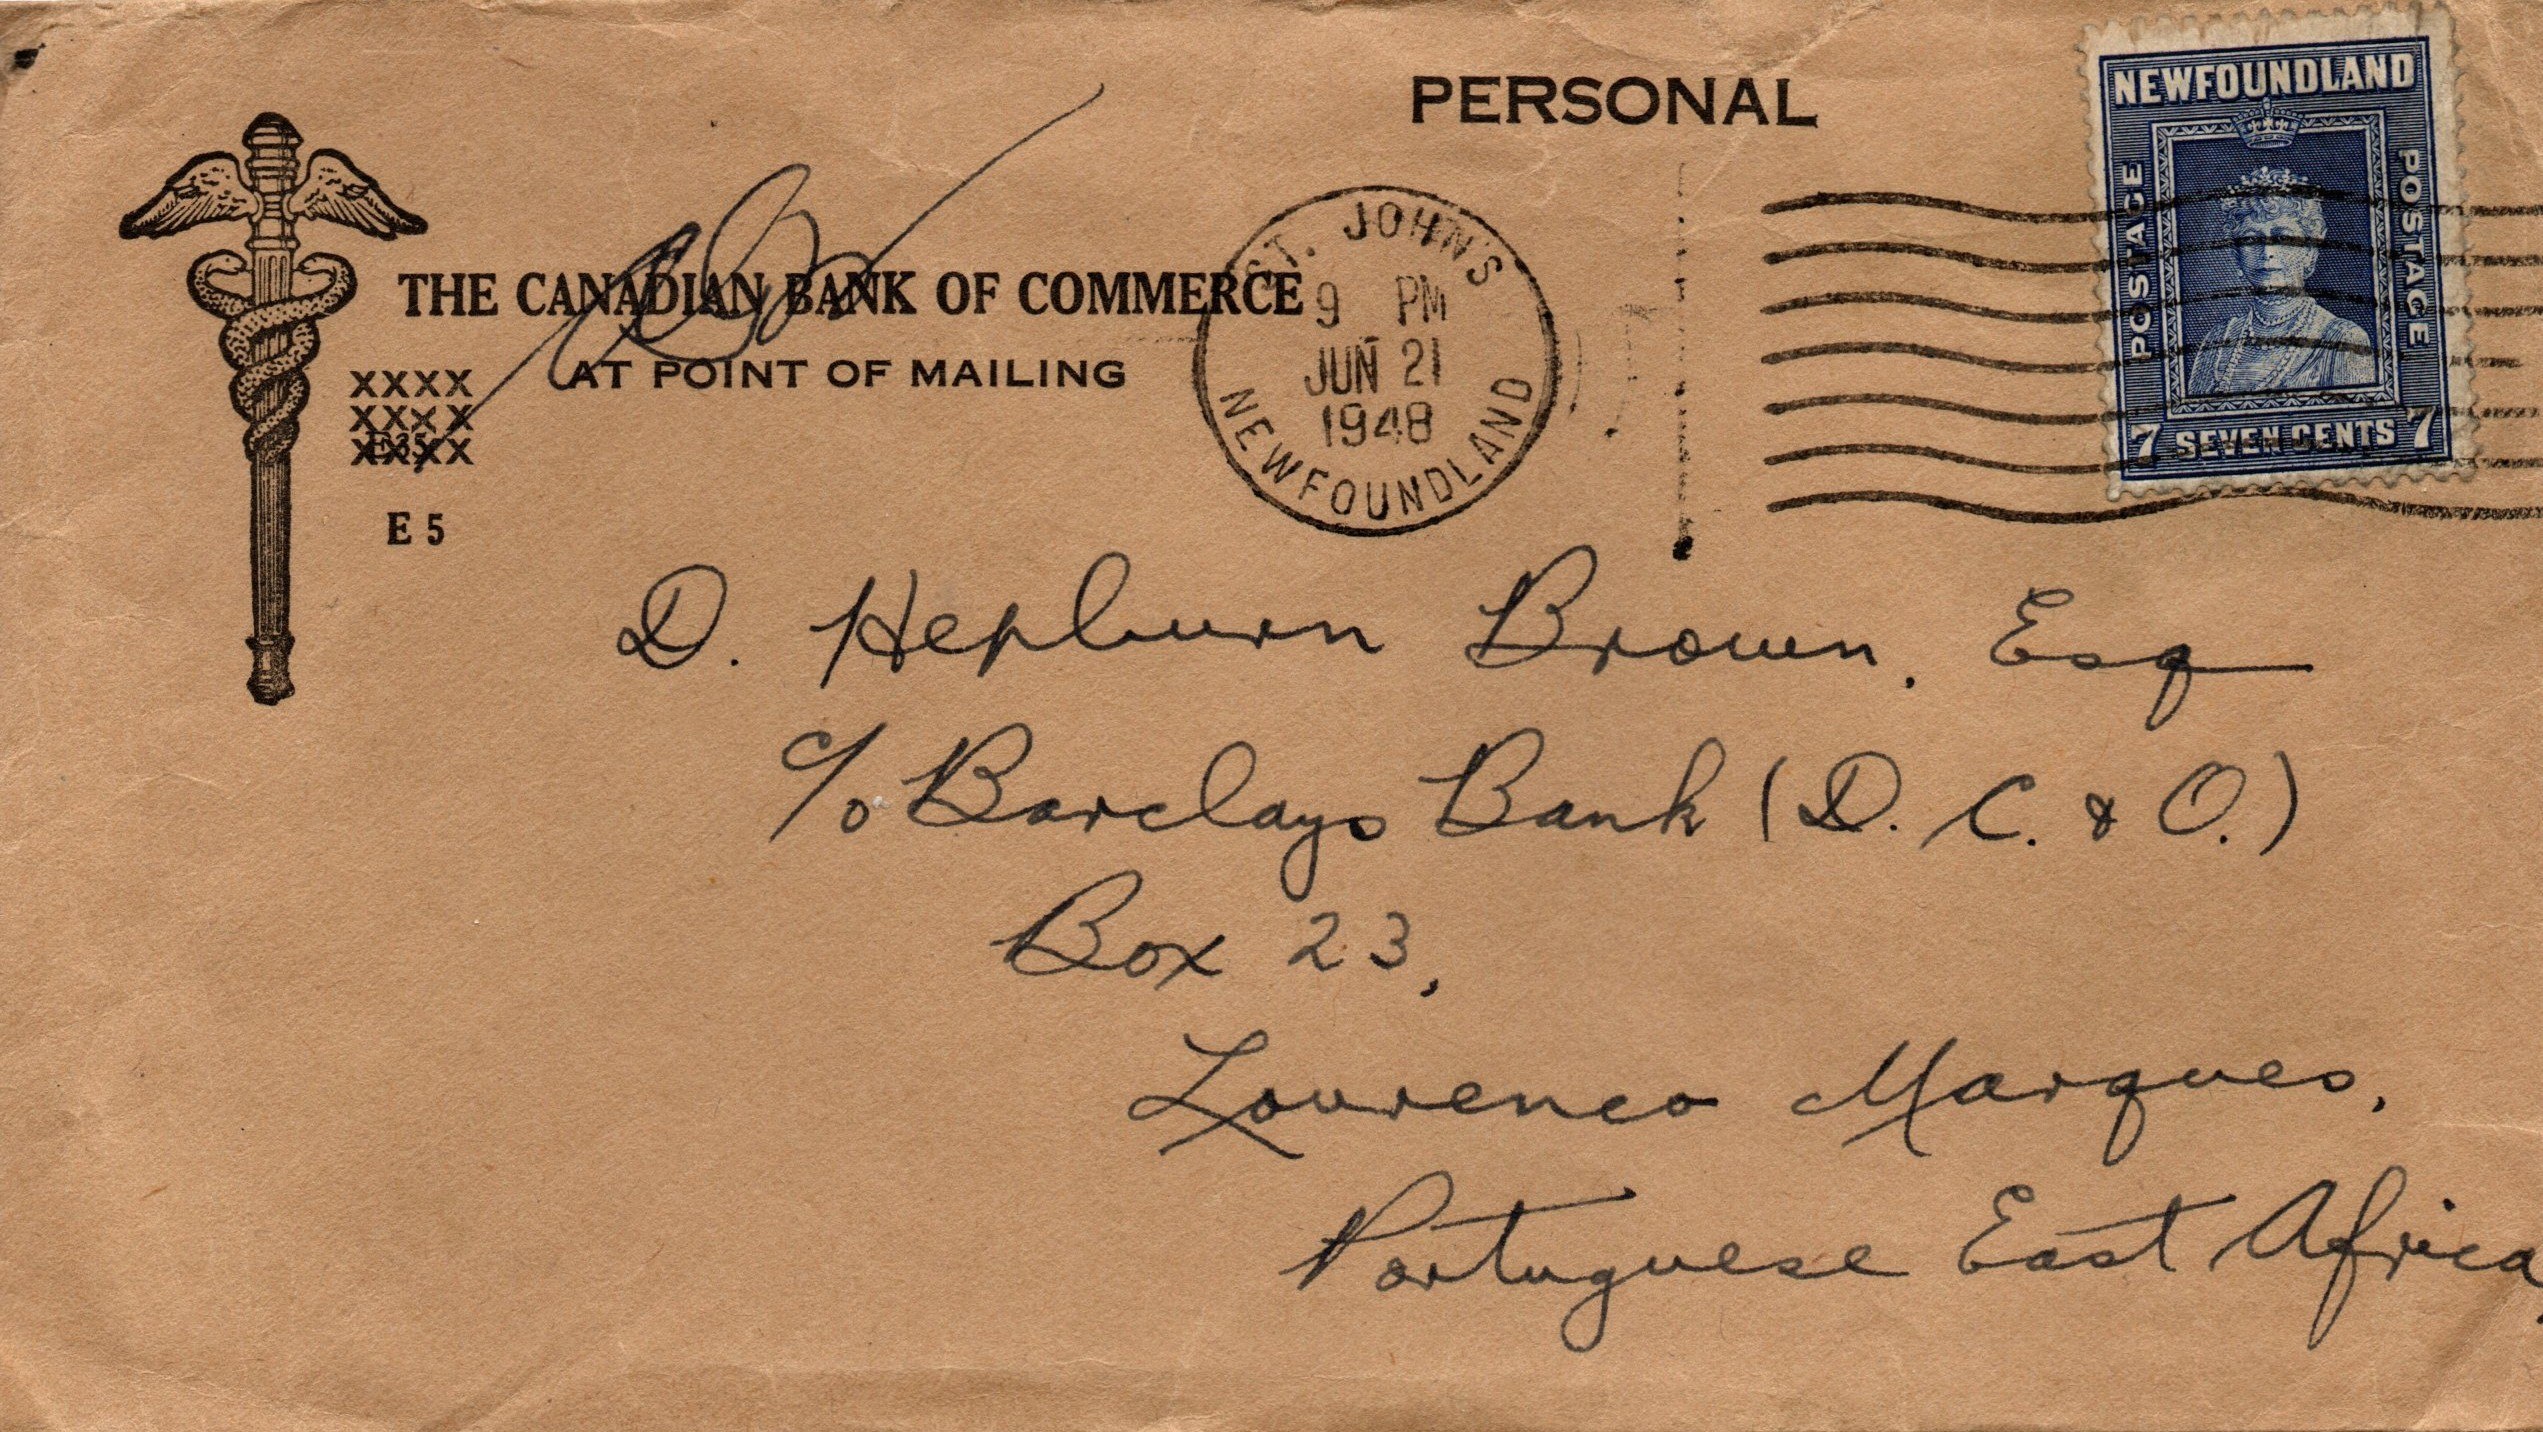 PERSONAL
NEWFOUNDLAND
POSTAGE
POSTAGE
7 SEVEN CENTS 7
THE CANADIAN BANK OF COMMERCE
AT POINT OF MAILING
XXXX
XXXX
XXXX
E35
E 5
ST. JOHN'S
9 PM
JUN 21
1948
NEWFOUNDLAND
D. Hepburn Brown, Esq
c/o Barclays Bank (D. C. & O.)
Box 23,
Lourenco Marques,
Portuguese East Africa